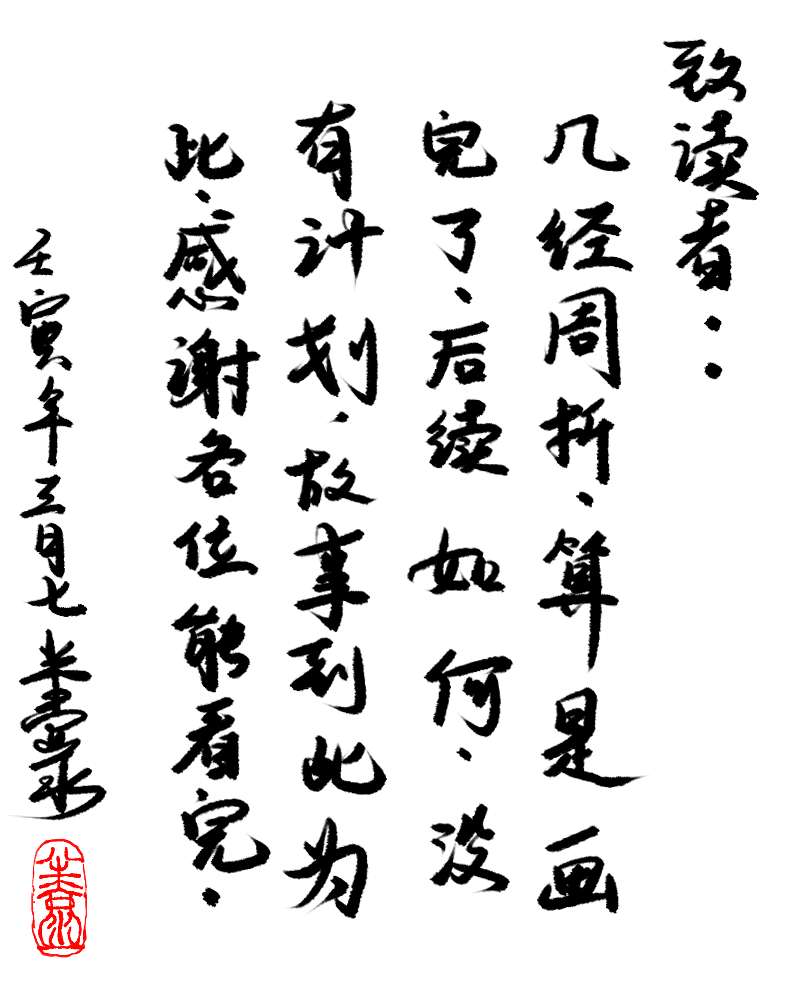 致读者：
几经周折、算是画
完了、后续如何、没
有计划、故事到此为
此、感谢各位能看完、
壬寅年三月七